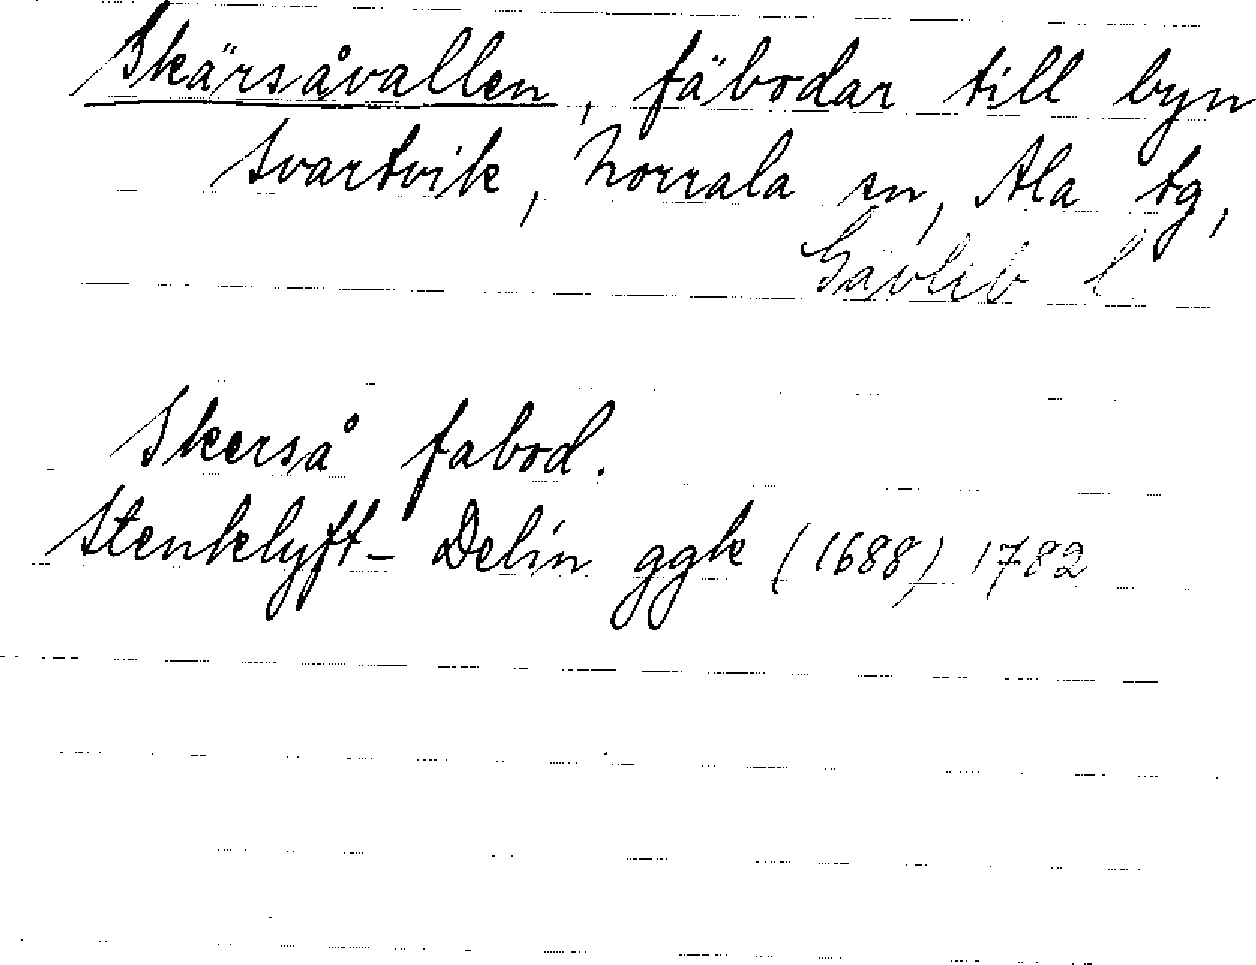 Skärsåvallen, fäbodar till byn
Svartvik, Norrala sn, Ala tg,
Gävleb l
Skerså fabod.
Stenklyft - Delin ggk (1688) 1782